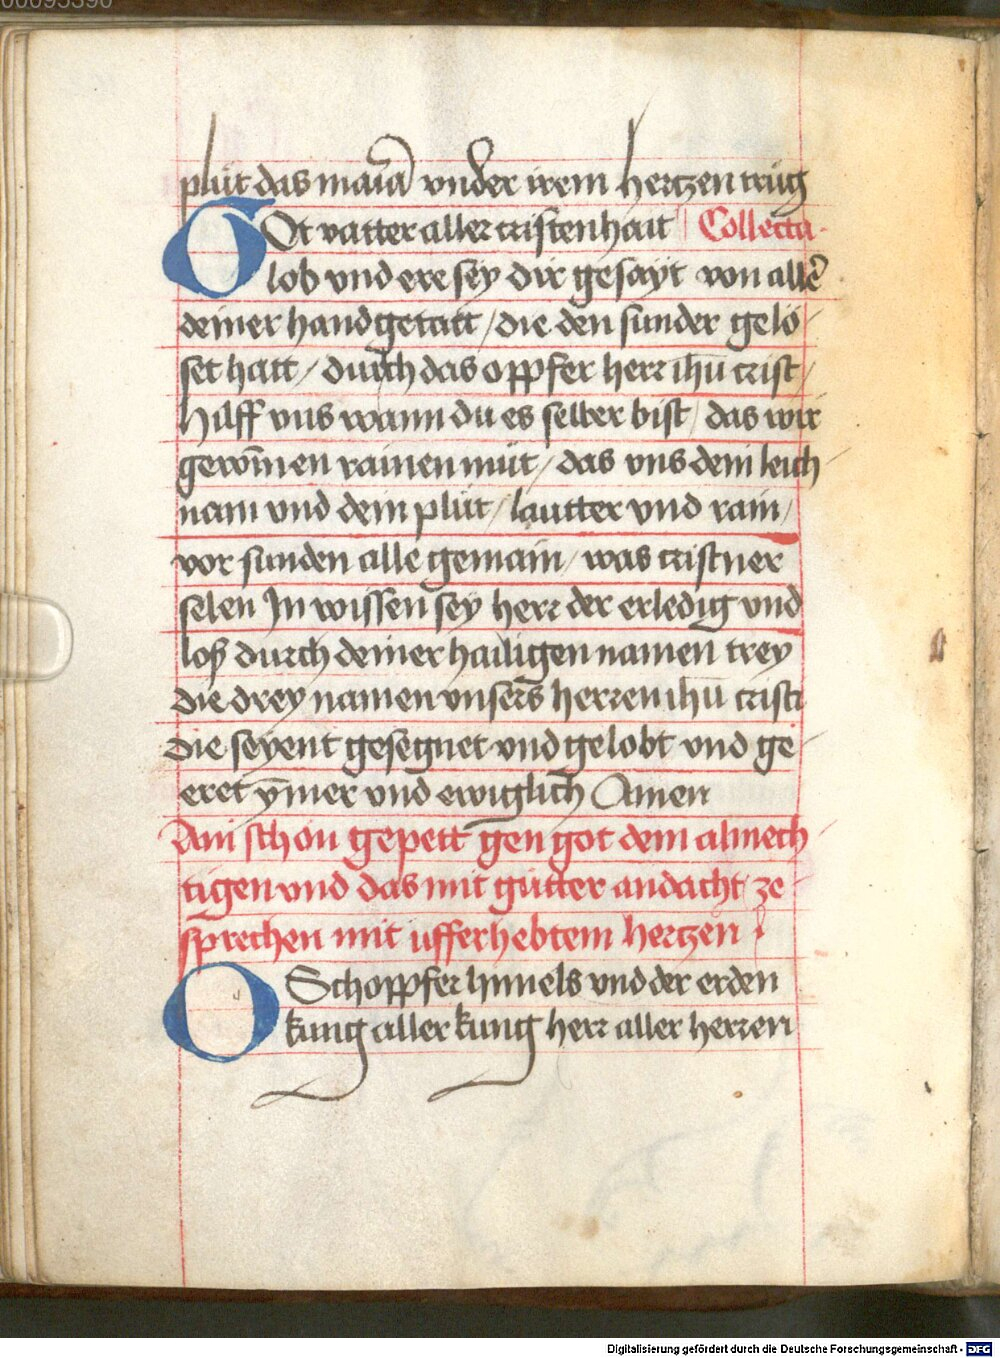 00095390
plůt das maria vnder irem hertzen trůg
GOt vatter aller cristenhait Collecta.
lob vnd ere sey dir gesayt von allē
deiner handgetatt / die den sunder gelö-
set hatt / durch das opffer herr ihū crist /
Hilff vns wann du es selber bist / das wir
gewīnen rainen můt / das vns dein leich-
nam vnd dein plůt / lautter vnd rain /
vor sunden alle gemain / was cristner
selen In wissen sey herr der erledig vnd
loß durch deiner hailigen namen trey
die drey namen vnsers herren ihū cristi
die seyent gesegnet vnd gelobt vnd ge-
eret ȳmer vnd ewiglich Amen
Ain schön gepett gen got dem almech-
tigen vnd das mit gůtter andacht ze-
sprechen mit ufferhebtem hertzen
O Schöpffer himels vnd der erden
kung aller kung herr aller herren
Digitalisierung gefördert durch die Deutsche Forschungsgemeinschaft - DFG